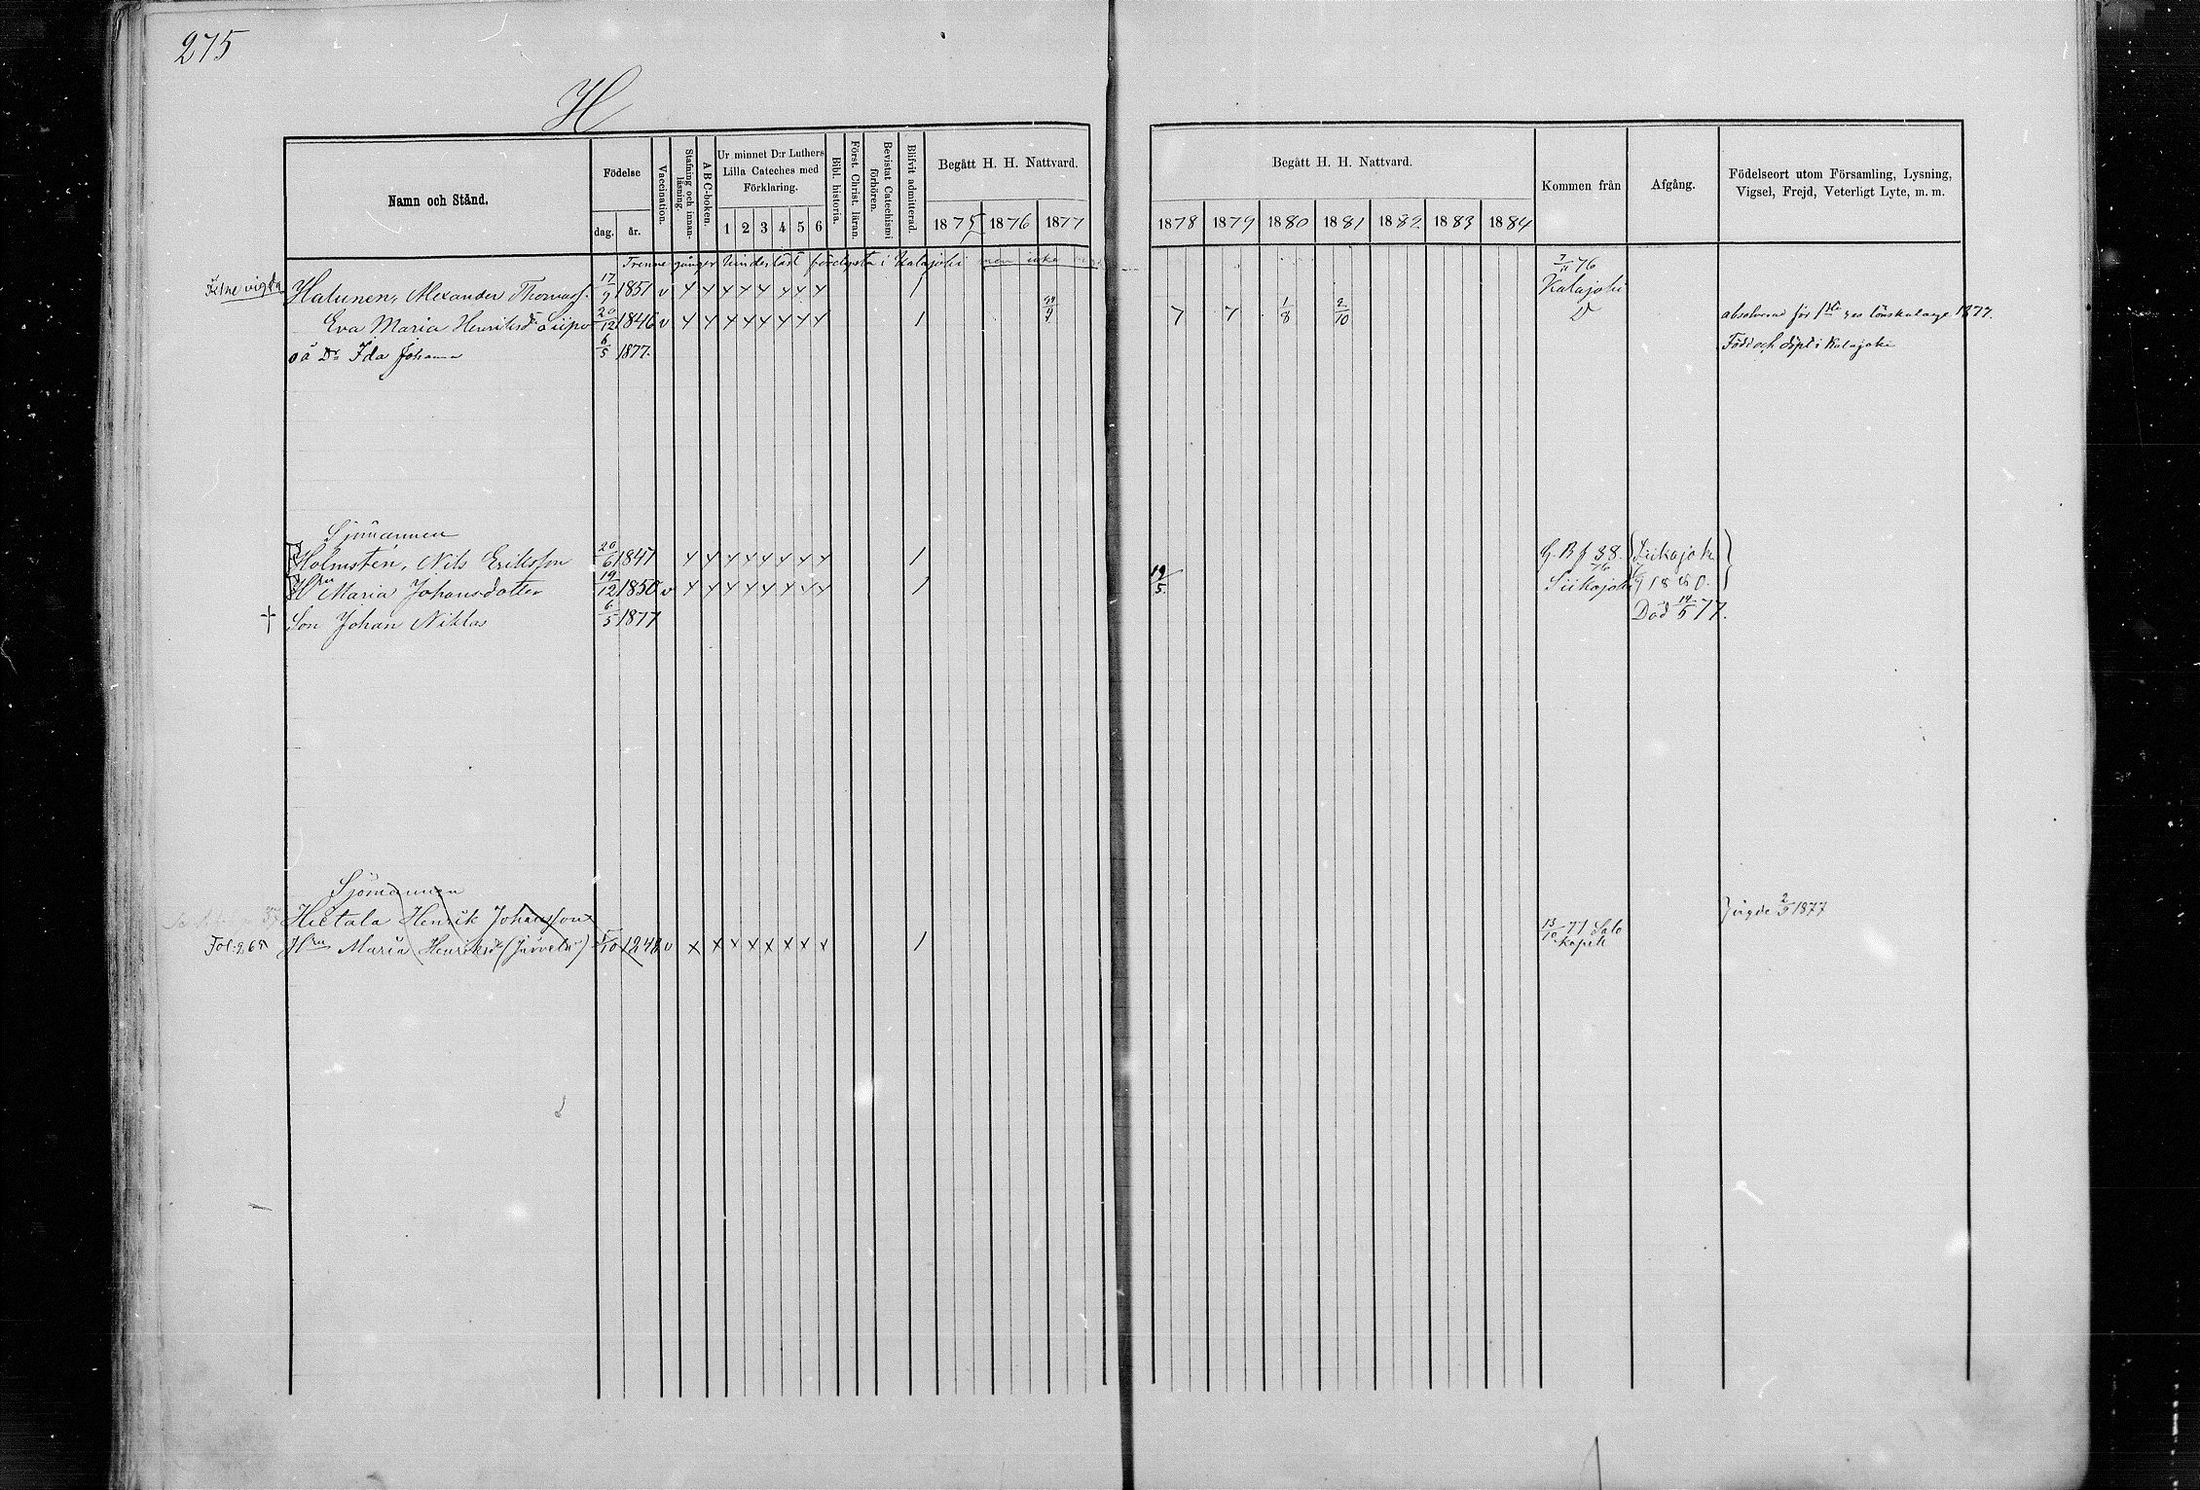 275
H
Namn och Stånd.
Födelse
dag. år.
Vaccination.
Stafning och innanläsning.
A B C-boken.
Ur minnet D:r Luthers Lilla Cateches med Förklaring.
1 2 3 4 5 6
Bibl. historia.
Först. Christ. läran.
Bevistat Catechismi förhören.
Blifvit admitterad.
Begått H. H. Nattvard.
1875 1876 1877
Begått H. H. Nattvard.
1878 1879 1880 1881 1882 1883 1884
Kommen från
Afgång.
Födelseort utom Församling, Lysning, Vigsel, Frejd, Veterligt Lyte, m. m.
Trenne gånger förelysta i Kalajoki men icke
Halunen, Alexander Thomass. 17/9 1851 v 1 7/11 76 Kalajoki
Eva Maria Henriksdr Siipo 20/12 1846 v 1 7 7 1/8 2/10 D absolverad för 1sta resa lönskaläge 1877.
oä Dr Ida Johanna 6/5 1877. Född och döpt i Kalajoki
Sjömannen
Holmstén, Nils Eriksson 20/6 1847 1 Siikajoki
Hru Maria Johansdotter 19/12 1850 v 1 19/5 Siikajoki 1880.
† Son Johan Niklas 6/5 1877 Död 14/5 77.
Sjömannen
Hietala Henrik Johansson 2/9 1877
Fol. 265 Hru Maria Henriksdr 1248 v 1 13/10 77 Salo kapell